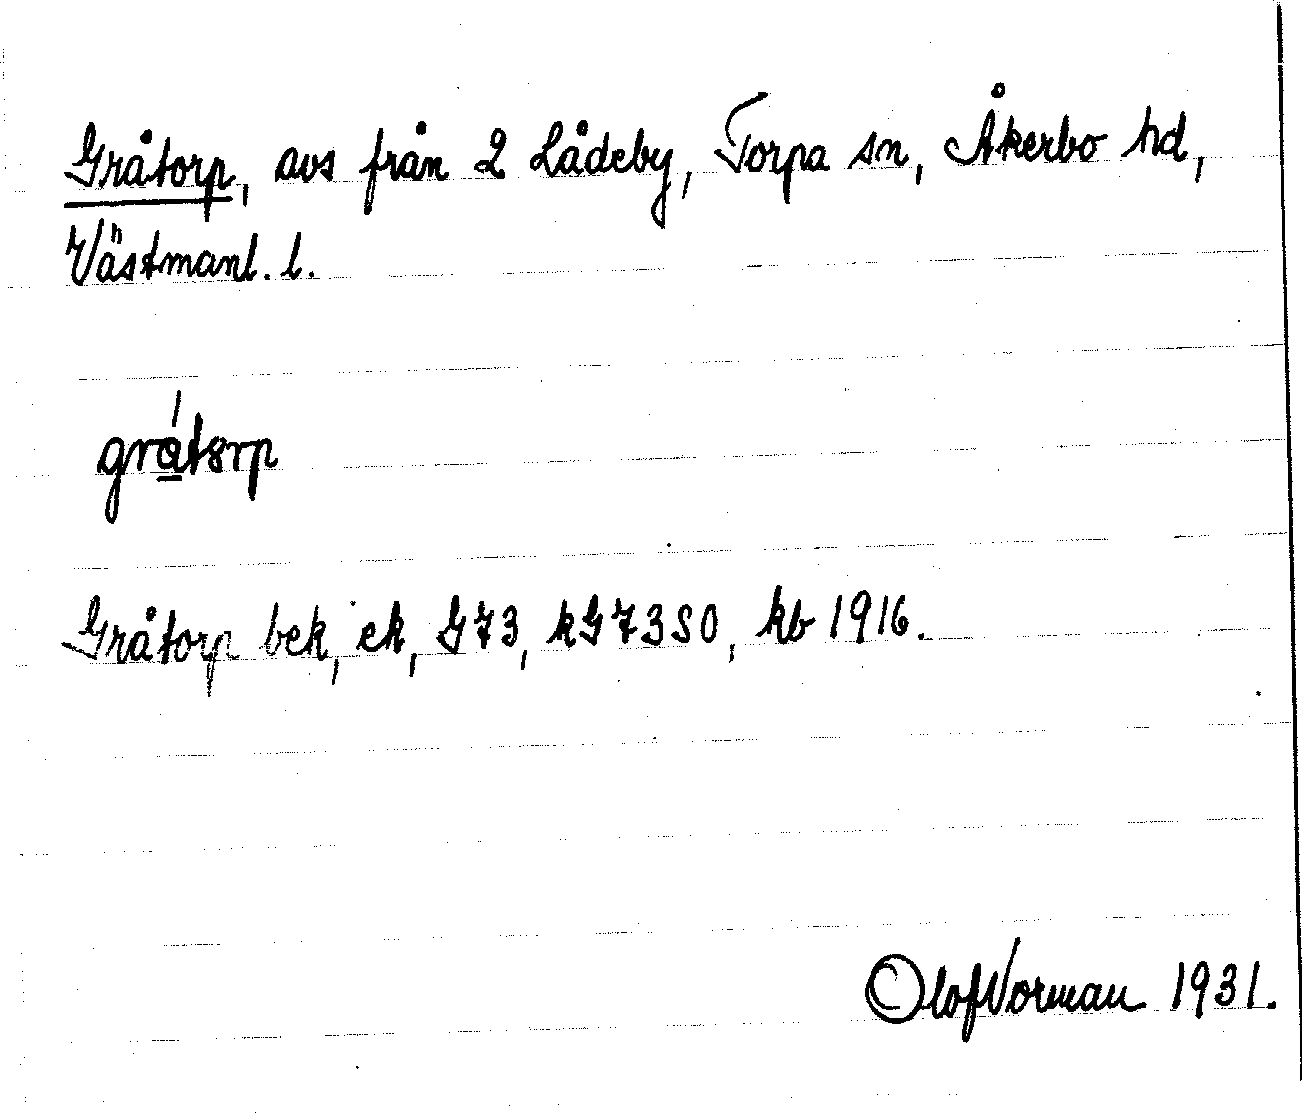 Gråtorp, avs från 2 Lådeby, Torpa sn, Åkerbo hd,
Västmanl. l.
grátorp
Gråtorp bek, ek, G73, kG73SO, kb 1916.
Olof Norman 1931.